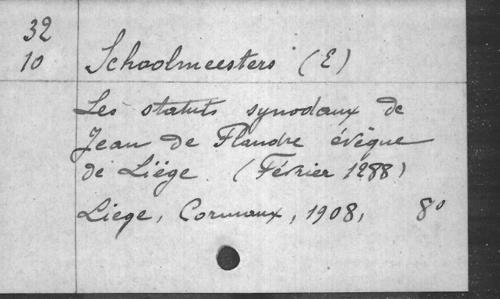 32
10 Schoolmeesters (E)
Les statuts synodaux de
Jean de Flandre évêque
de Liége. (Février 1288)
Liege, Cormaux, 1908, 8°